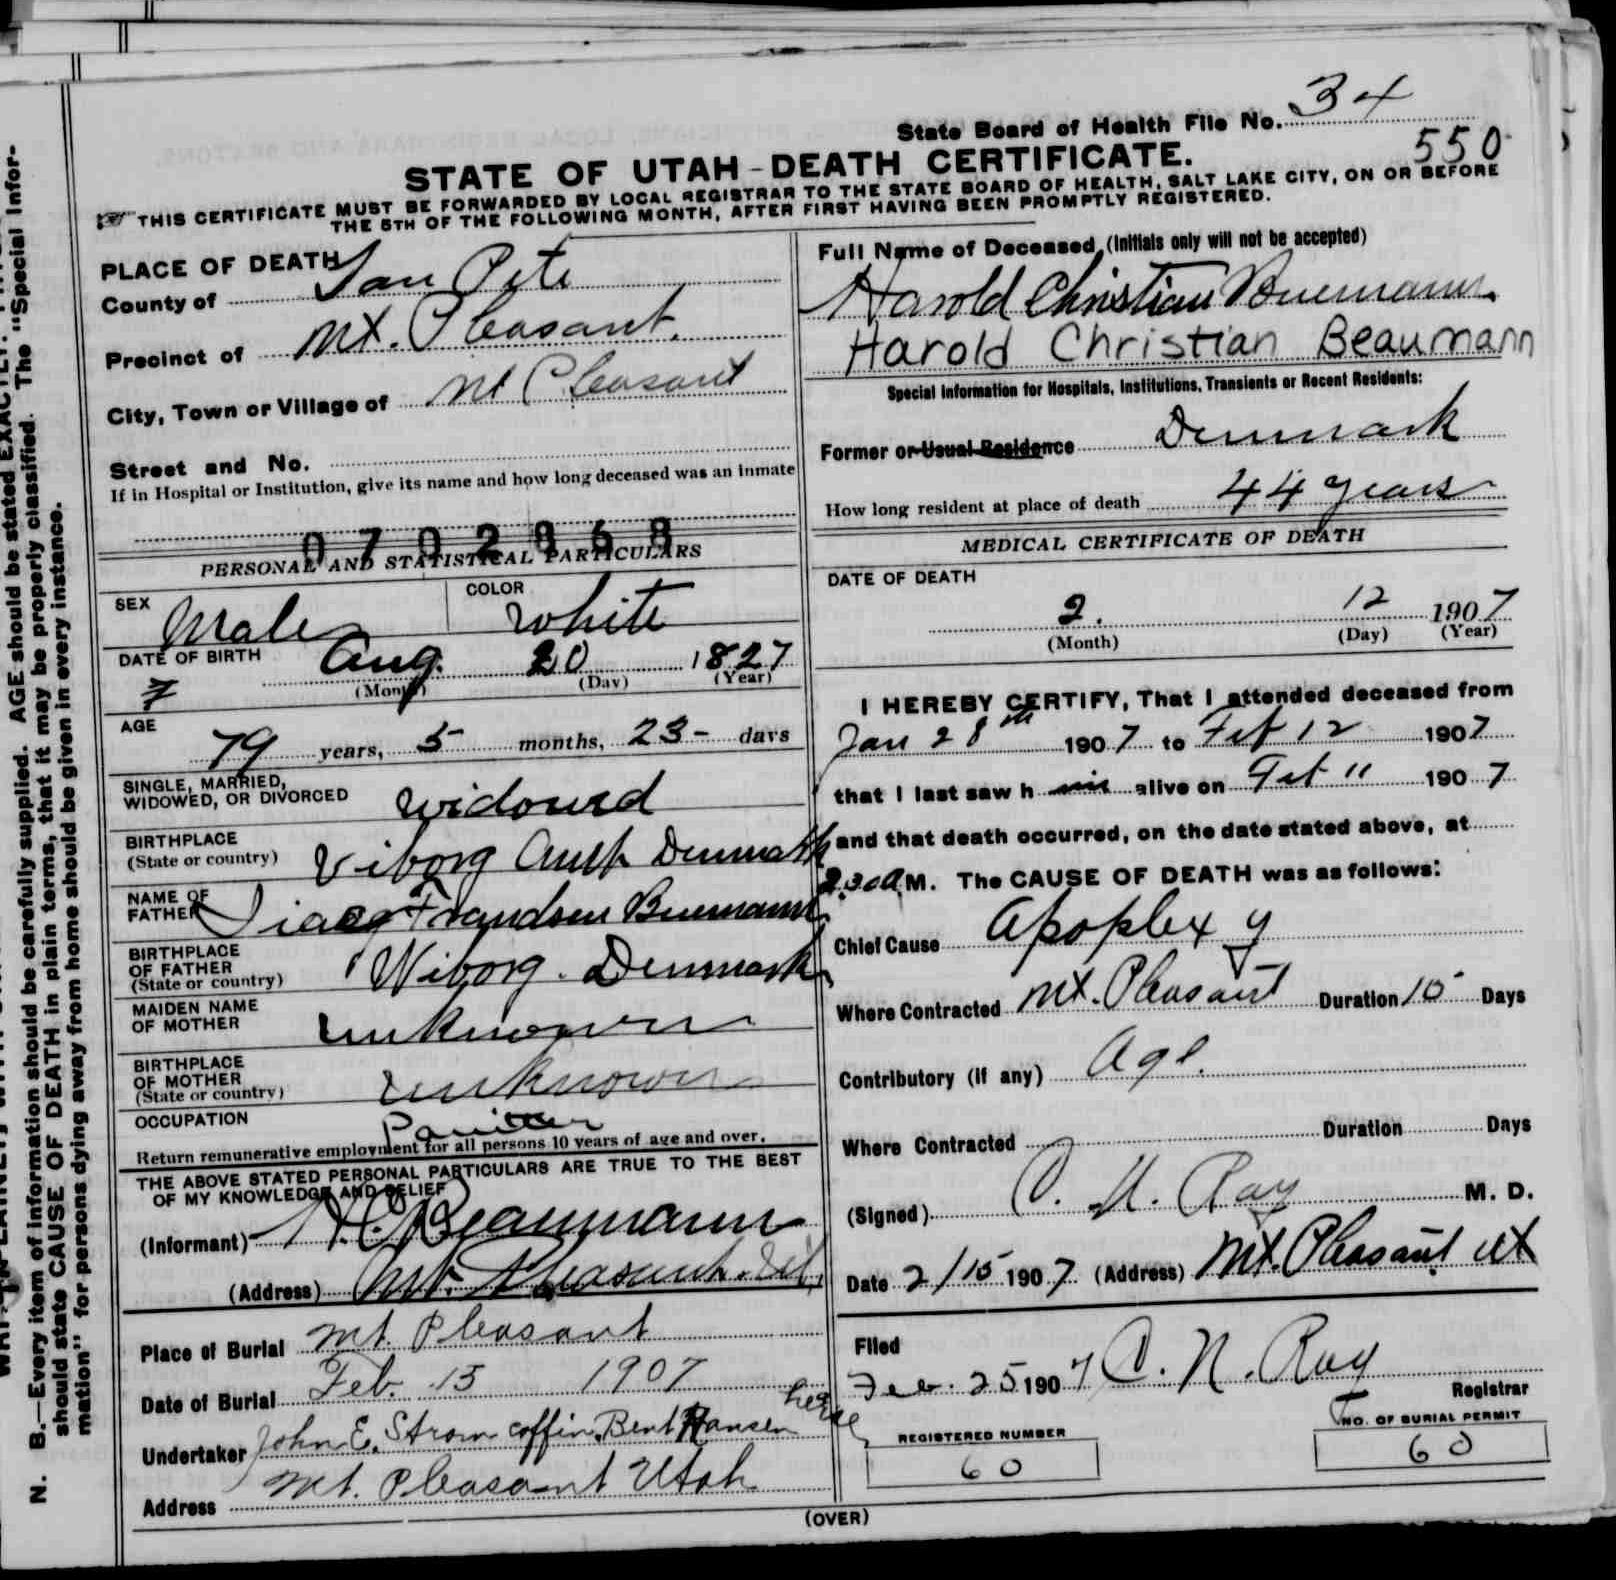 State Board of Health File No. 34
550
STATE OF UTAH - DEATH CERTIFICATE.
THIS CERTIFICATE MUST BE FORWARDED BY LOCAL REGISTRAR TO THE STATE BOARD OF HEALTH, SALT LAKE CITY, ON OR BEFORE
THE 5TH OF THE FOLLOWING MONTH, AFTER FIRST HAVING BEEN PROMPTLY REGISTERED.
PLACE OF DEATH
County of San Pete
Precinct of Mt. Pleasant.
City, Town or Village of Mt Pleasant
Street and No.
If in Hospital or Institution, give its name and how long deceased was an inmate
0702868
PERSONAL AND STATISTICAL PARTICULARS
SEX Male
COLOR White
DATE OF BIRTH Aug. 20 1827
7 (Month) (Day) (Year)
AGE 79 years, 5 months, 23- days
SINGLE, MARRIED,
WIDOWED, OR DIVORCED widowed
BIRTHPLACE
(State or country) Viborg Amt Denmark
NAME OF
FATHER Frandsen Buemann
BIRTHPLACE
OF FATHER
(State or country) Wiborg. Denmark
MAIDEN NAME
OF MOTHER unknown
BIRTHPLACE
OF MOTHER
(State or country) unknown
OCCUPATION Painter
Return remunerative employment for all persons 10 years of age and over.
THE ABOVE STATED PERSONAL PARTICULARS ARE TRUE TO THE BEST
OF MY KNOWLEDGE AND BELIEF
(Informant) H.C. Beaumann
(Address) Mt. Pleasant. Ut.
Place of Burial Mt. Pleasant
Date of Burial Feb. 15 1907
Undertaker John E. Strom coffin, Bent Hansen hearse
Address Mt. Pleasant Utah
Full Name of Deceased (Initials only will not be accepted)
Harold Christian Buemann.
Harold Christian Beaumann
Special Information for Hospitals, Institutions, Transients or Recent Residents:
Former or Usual Residence Denmark
How long resident at place of death 44 years
MEDICAL CERTIFICATE OF DEATH
DATE OF DEATH
2. 12 1907
(Month) (Day) (Year)
I HEREBY CERTIFY, That I attended deceased from
Jan 28th 1907 to Feb 12 1907
that I last saw him alive on Feb 11 1907
and that death occurred, on the date stated above, at
2.30 A.M. The CAUSE OF DEATH was as follows:
Chief Cause Apoplexy
Where Contracted Mt. Pleasant Duration 15 Days
Contributory (if any) Age.
Where Contracted Duration Days
(Signed) C. N. Ray M. D.
Date 2/15 1907 (Address) Mt. Pleasant Ut
Filed
Feb. 25 1907 C. N. Ray
Registrar
REGISTERED NUMBER
60
NO. OF BURIAL PERMIT
60
(OVER)
N. B.—Every item of information should be carefully supplied. AGE should be stated EXACTLY.
should state CAUSE OF DEATH in plain terms, that it may be properly classified. The "Special Infor-
mation" for persons dying away from home should be given in every instance.